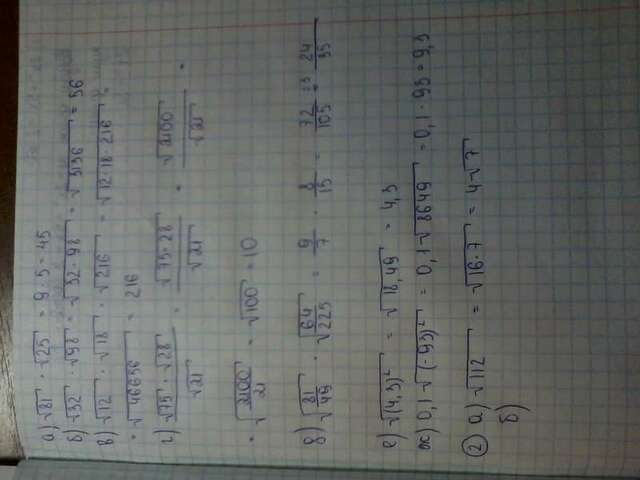 а) √81 · √25 = 9 · 5 = 45
б) √32 · √98 = √32 · 98 = √3136 = 56
в) √12 · √18 · √216 = √12·18·216 =
= √46656 = 216
г) √75 · √28 / √21 = √75 · 28 / √21 = √2100 / √21 =
= √2100/21 = √100 = 10
д) √81/49 · √64/225 = 9/7 · 8/15 = 72/105 = 24/35
е) √(4,3)² = √18,49 = 4,3
ж) 0,1√(-93)² = 0,1√8649 = 0,1 · 93 = 9,3
② а) √112 = √16·7 = 4√7
б)